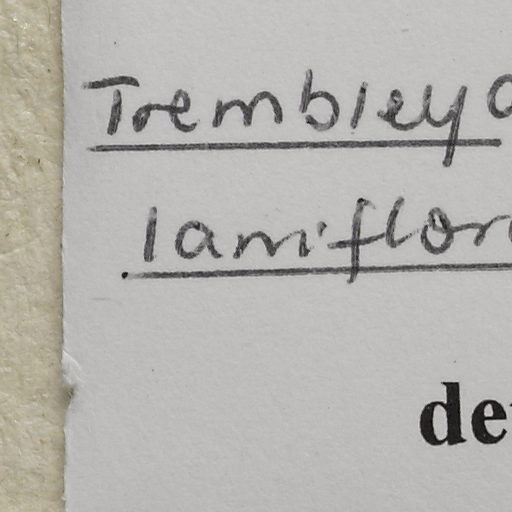 Trembleya
laniflor
de